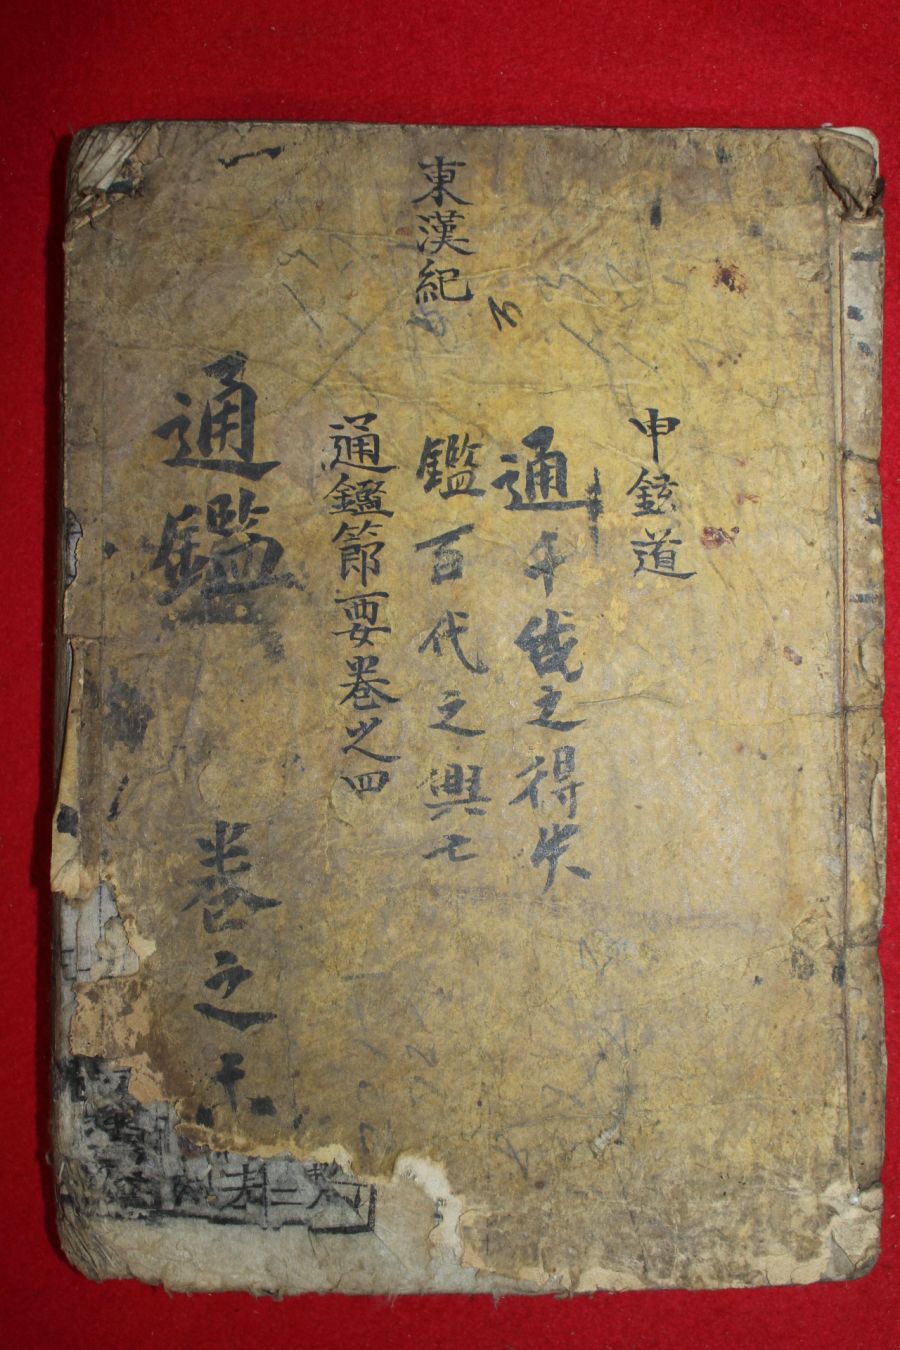 申鉉道
通千歲之得失
鑑百代之興亡
東漢紀
通鑑節要卷之四
一
通鑑
卷之